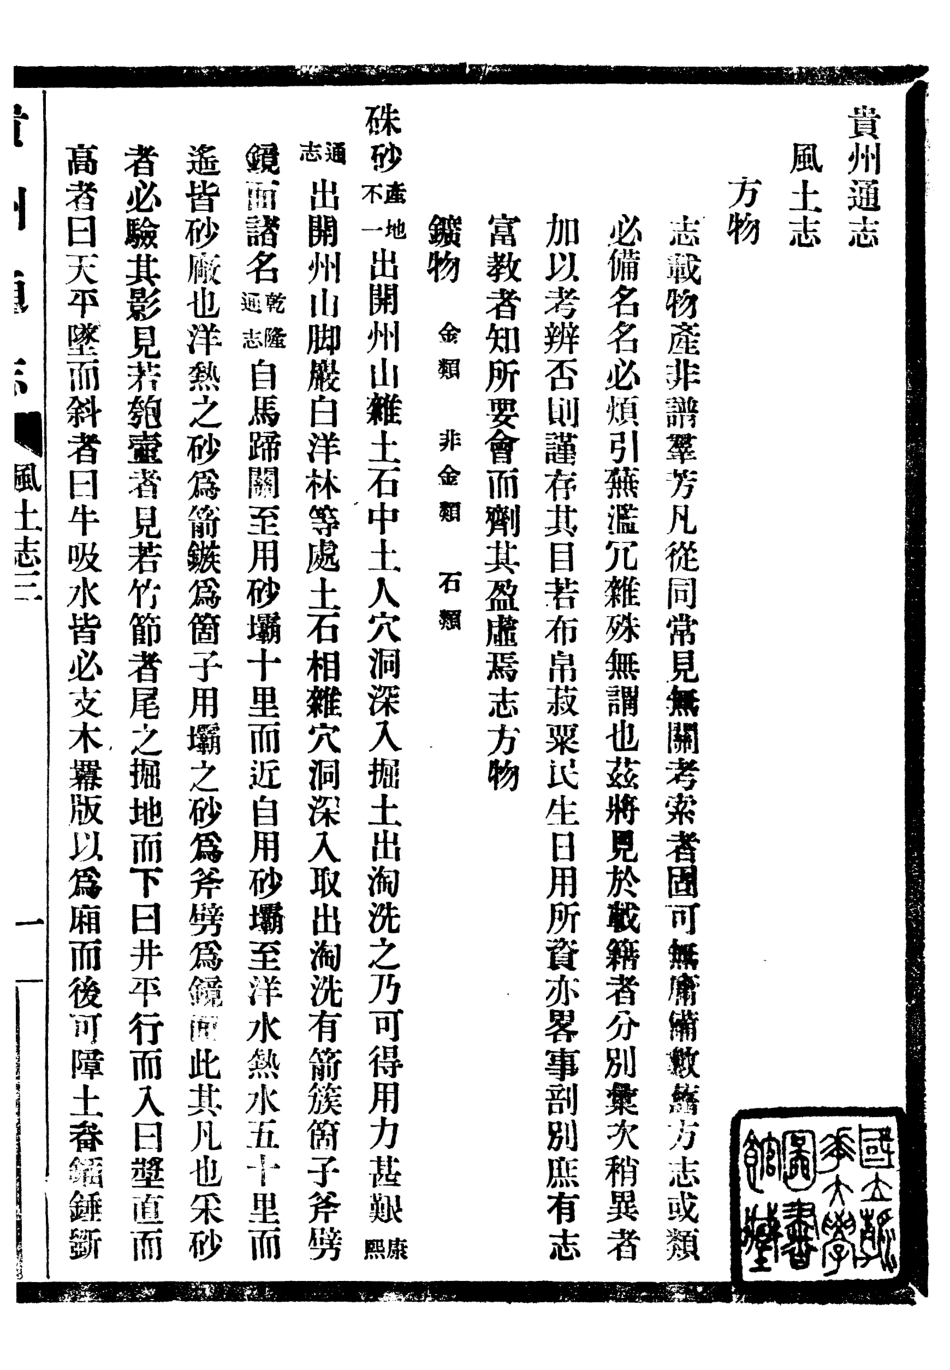 貴州通志
風土志
方物
志載物產非譜羣芳凡從同常見無關考索者固可無庸備數舊方志或類
必備名名必煩引蕪濫冗雜殊無謂也茲將見於載籍者分別彙次稍異者
加以考辨否則謹存其目若布帛菽粟民生日用所資亦畧事剖別庶有志
富教者知所要會而劑其盈虛焉志方物
鑛物 金類 非金類 石類
硃砂產地不一出開州山雜土石中土人穴洞深入掘土出淘洗之乃可得用力甚艱康熙
通志出開州山脚巖白洋林等處土石相雜穴洞深入取出淘洗有箭簇箇子斧劈
鏡面諸名乾隆通志自馬蹄關至用砂壩十里而近自用砂壩至洋水熱水五十里而
遙皆砂廠也洋熱之砂爲箭鏃爲箇子用壩之砂爲斧劈爲鏡面此其凡也采砂
者必驗其影見若匏壷者見若竹節者尾之掘地而下曰井平行而入曰壟直而
高者曰天平墜而斜者曰牛吸水皆必支木羃版以爲廂而後可障土畚鍤錘斲
貴州通志
風土志三
一
國立清華大學圖書館藏